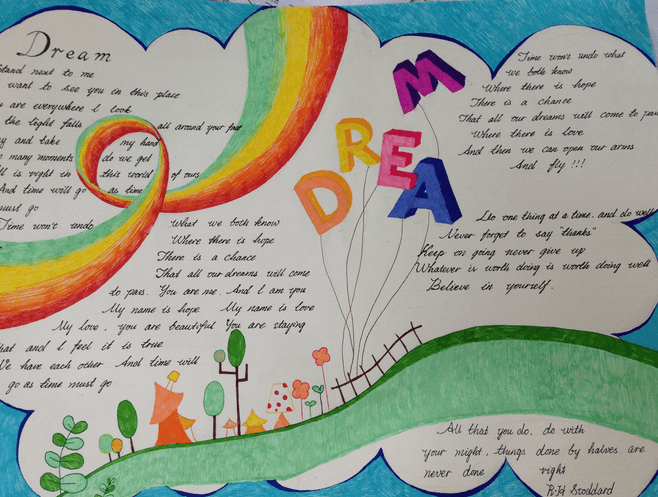 Dream
Stand next to me
want to see you in this place
are everywhere I look
the light falls all around your feet
and take my hand
many moments do we get
is right in this world of ours
And time will go as time
must go
Time won't undo What we both know
Where there is hope
There is a chance
That all our dreams will come
to pass. You are me. And I am you
My name is hope My name is love
My love, you are beautiful You are staying
that and I feel it is true
We have each other And time will
go as time must go
DREAM
Time won't undo what
we both know
Where there is hope
There is a chance
That all our dreams will come to pass
Where there is love
And then we can open our arms
And fly !!!
Do one thing at a time. and do well
Never forget to say "thanks"
Keep on going never give up
Whatever is worth doing is worth doing well
Believe in yourself.
All that you do, do with
your might, things done by halves are
never done right
R·H Stoddard